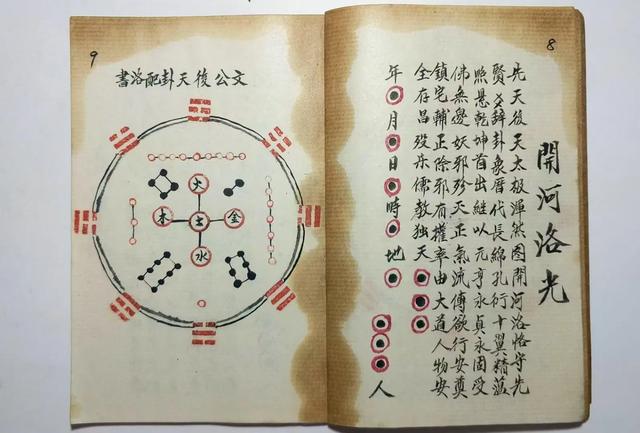 8
開河洛光
先天後天太极渾然图開河洛恪守先
賢爻辞卦象厝代長綿孔衍十翼精蕴
照悬乾坤首出継以元亨永貞永固受
佛無邊妖邪殄灭正氣流傳欲行安奠
鎮宅輔正除邪有權率由大道人物安
全存昌殁乐儒教独天
年月日時地人
9
文公後天卦配洛書
火
木土金
水